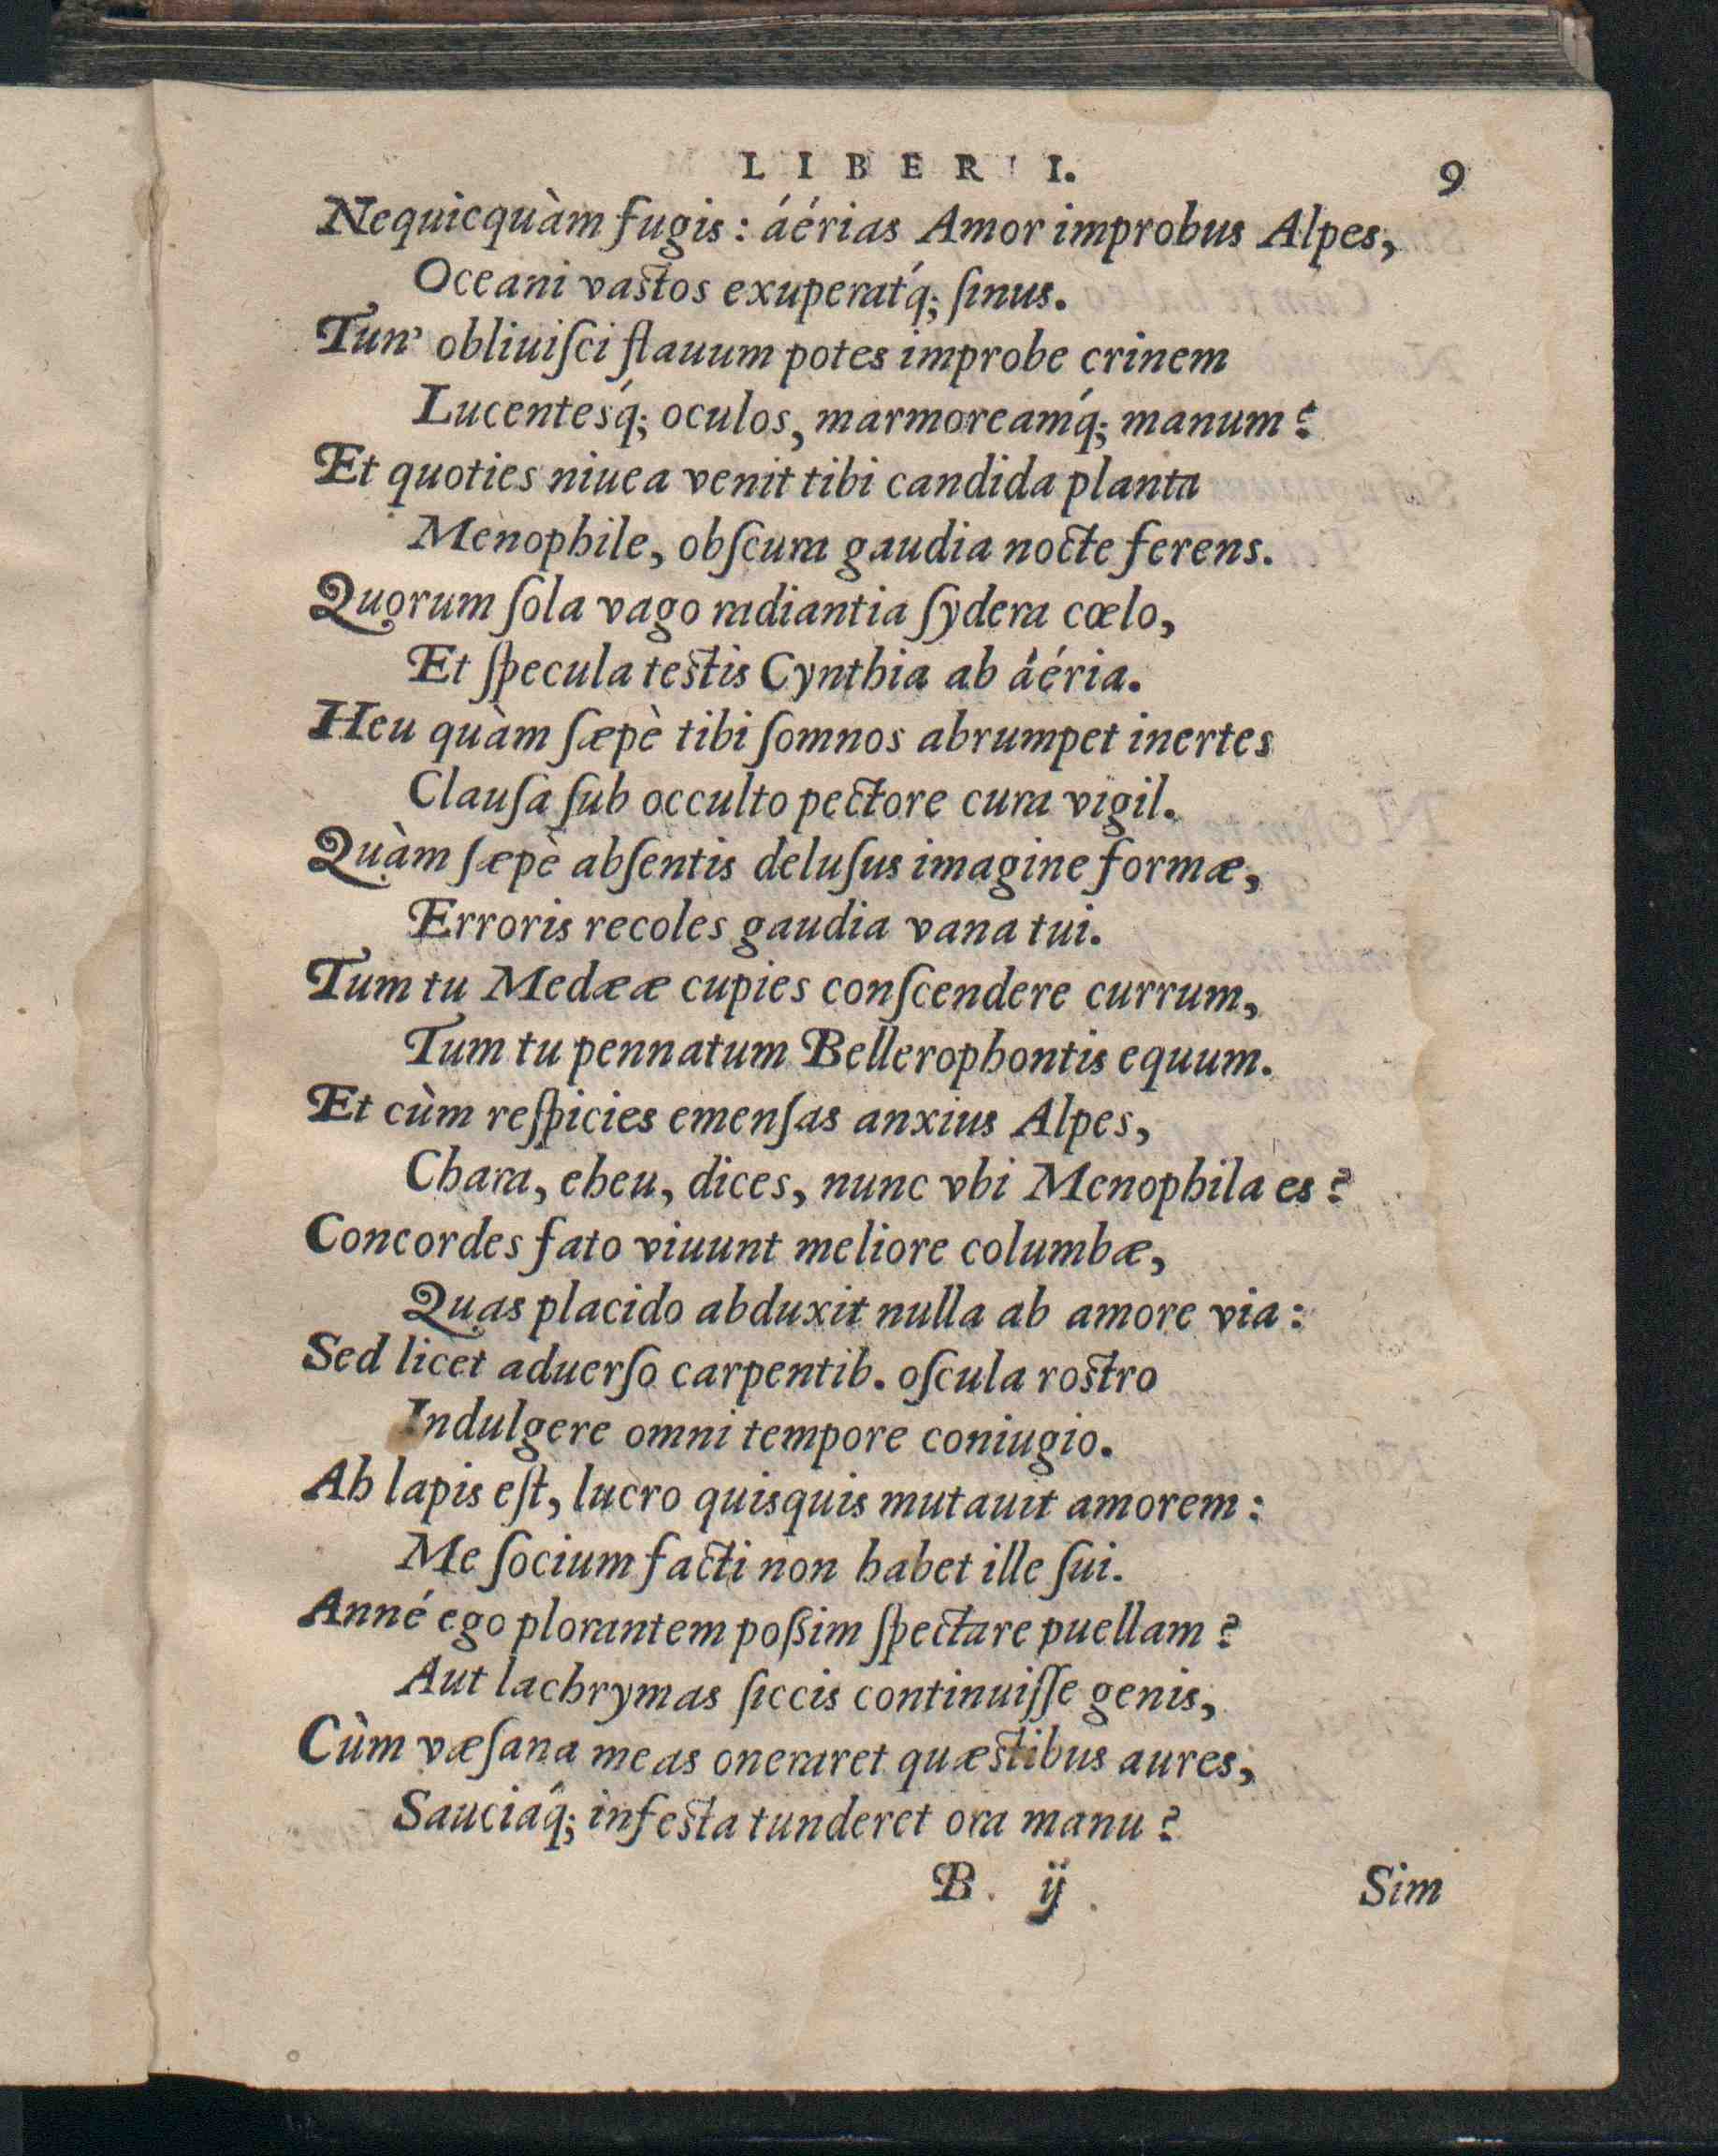 LIBER I. 9
Nequicquàm fugis: áérias Amor improbus Alpes,
Oceani vastos exuperat́q; ſinus.
Tun' obliuiſci flauum potes improbe crinem
Lucentesq́; oculos, marmoreamq́; manum?
Et quoties niuea venit tibi candida planta
Menophile, obſcura gaudia nocte ferens.
Quorum ſola vago radiantia ſydera cœlo,
Et ſpecula testis Cynthia ab áéria.
Heu quàm ſæpè tibi ſomnos abrumpet inertes
Clauſa ſub occulto pectore cura vigil.
Quàm ſæpè abſentis deluſus imagine formæ,
Erroris recoles gaudia vana tui.
Tum tu Medææ cupies conſcendere currum,
Tum tu pennatum Bellerophontis equum.
Et cùm reſpicies emenſas anxius Alpes,
Chara, eheu, dices, nunc vbi Menophila es?
Concordes fato viuunt meliore columbæ,
Quas placido abduxit nulla ab amore via:
Sed licet aduerſo carpentib. oſcula rostro
Indulgere omni tempore coniugio.
Ah lapis eſt, lucro quisquis mutauit amorem:
Me ſocium facti non habet ille ſui.
Anné ego plorantem poßim ſpectare puellam?
Aut lachrymas ſiccis continuiſſe genis,
Cùm væſana meas oneraret quæstibus aures,
Sauciáq; infesta tunderet ora manu?
B. ij Sim